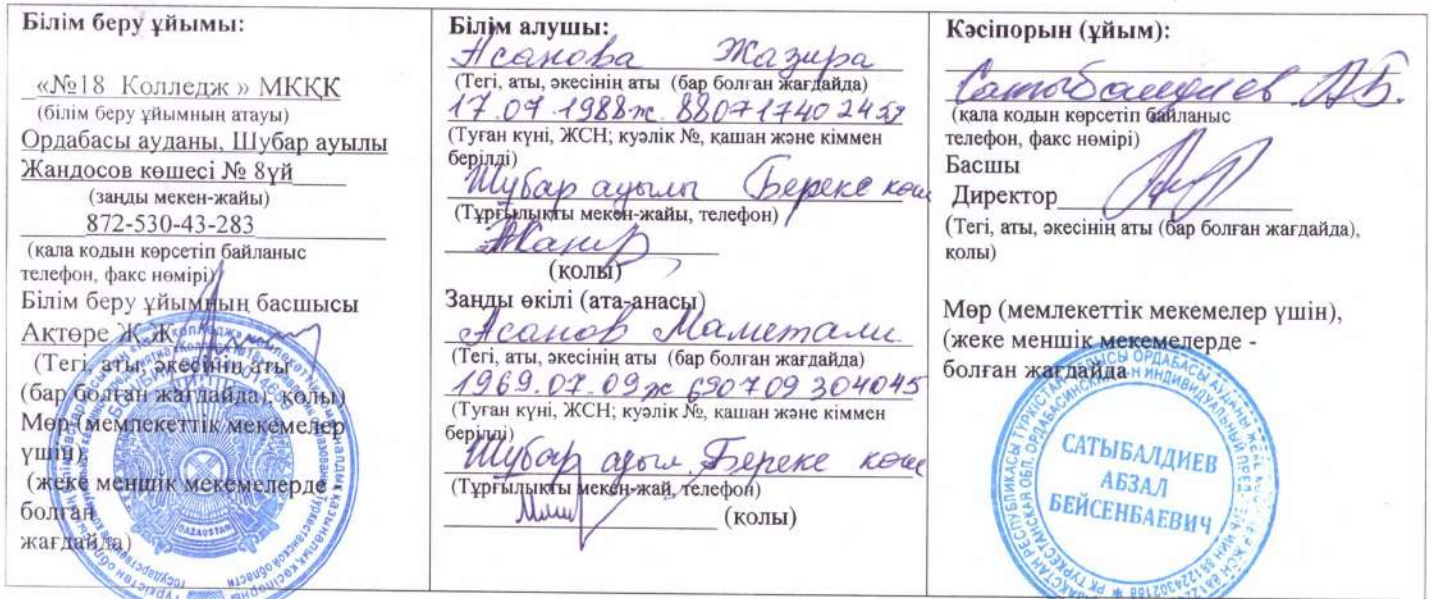 Білім беру ұйымы:
«№18 Колледж » МКҚК
(білім беру ұйымның атауы)
Ордабасы ауданы, Шубар ауылы
Жандосов көшесі № 8үй
(заңды мекен-жайы)
872-530-43-283
(қала кодын көрсетіп байланыс
телефон, факс нөмірі)
Білім беру ұйымның басшысы
Ақтөре Ж.Ж
(Тегі, аты, әкесінің аты
(бар болған жағдайда), қолы)
Мөр (мемлекеттік мекемелер
үшін),
(жеке меншік мекемелерде -
болған
жағдайда)
QAZAQSTAN
Білім алушы:
Асанова Жазира
(Тегі, аты, әкесінің аты (бар болған жағдайда)
17.07.1988ж. 8807174024
(Туған күні, ЖСН; куәлік №, қашан және кіммен
берілді)
Шубар ауылы Береке көше
(Тұрғылықты мекен-жайы, телефон)
(қолы)
Заңды өкілі (ата-анасы)
Асанов Маметали
(Тегі, аты, әкесінің аты (бар болған жағдайда)
1969.07.09ж 690709304045
(Туған күні, ЖСН; куәлік №, қашан және кіммен
берілді)
Шубар ауыл, Береке көше
(Тұрғылықты мекен-жай, телефон)
(қолы)
Кәсіпорын (ұйым):
Сатыбалдиев А.Б.
(қала кодын көрсетіп байланыс
телефон, факс нөмірі)
Басшы
Директор
(Тегі, аты, әкесінің аты (бар болған жағдайда),
қолы)
Мөр (мемлекеттік мекемелер үшін),
(жеке меншік мекемелерде -
болған жағдайда
САТЫБАЛДИЕВ
АБЗАЛ
БЕЙСЕНБАЕВИЧ